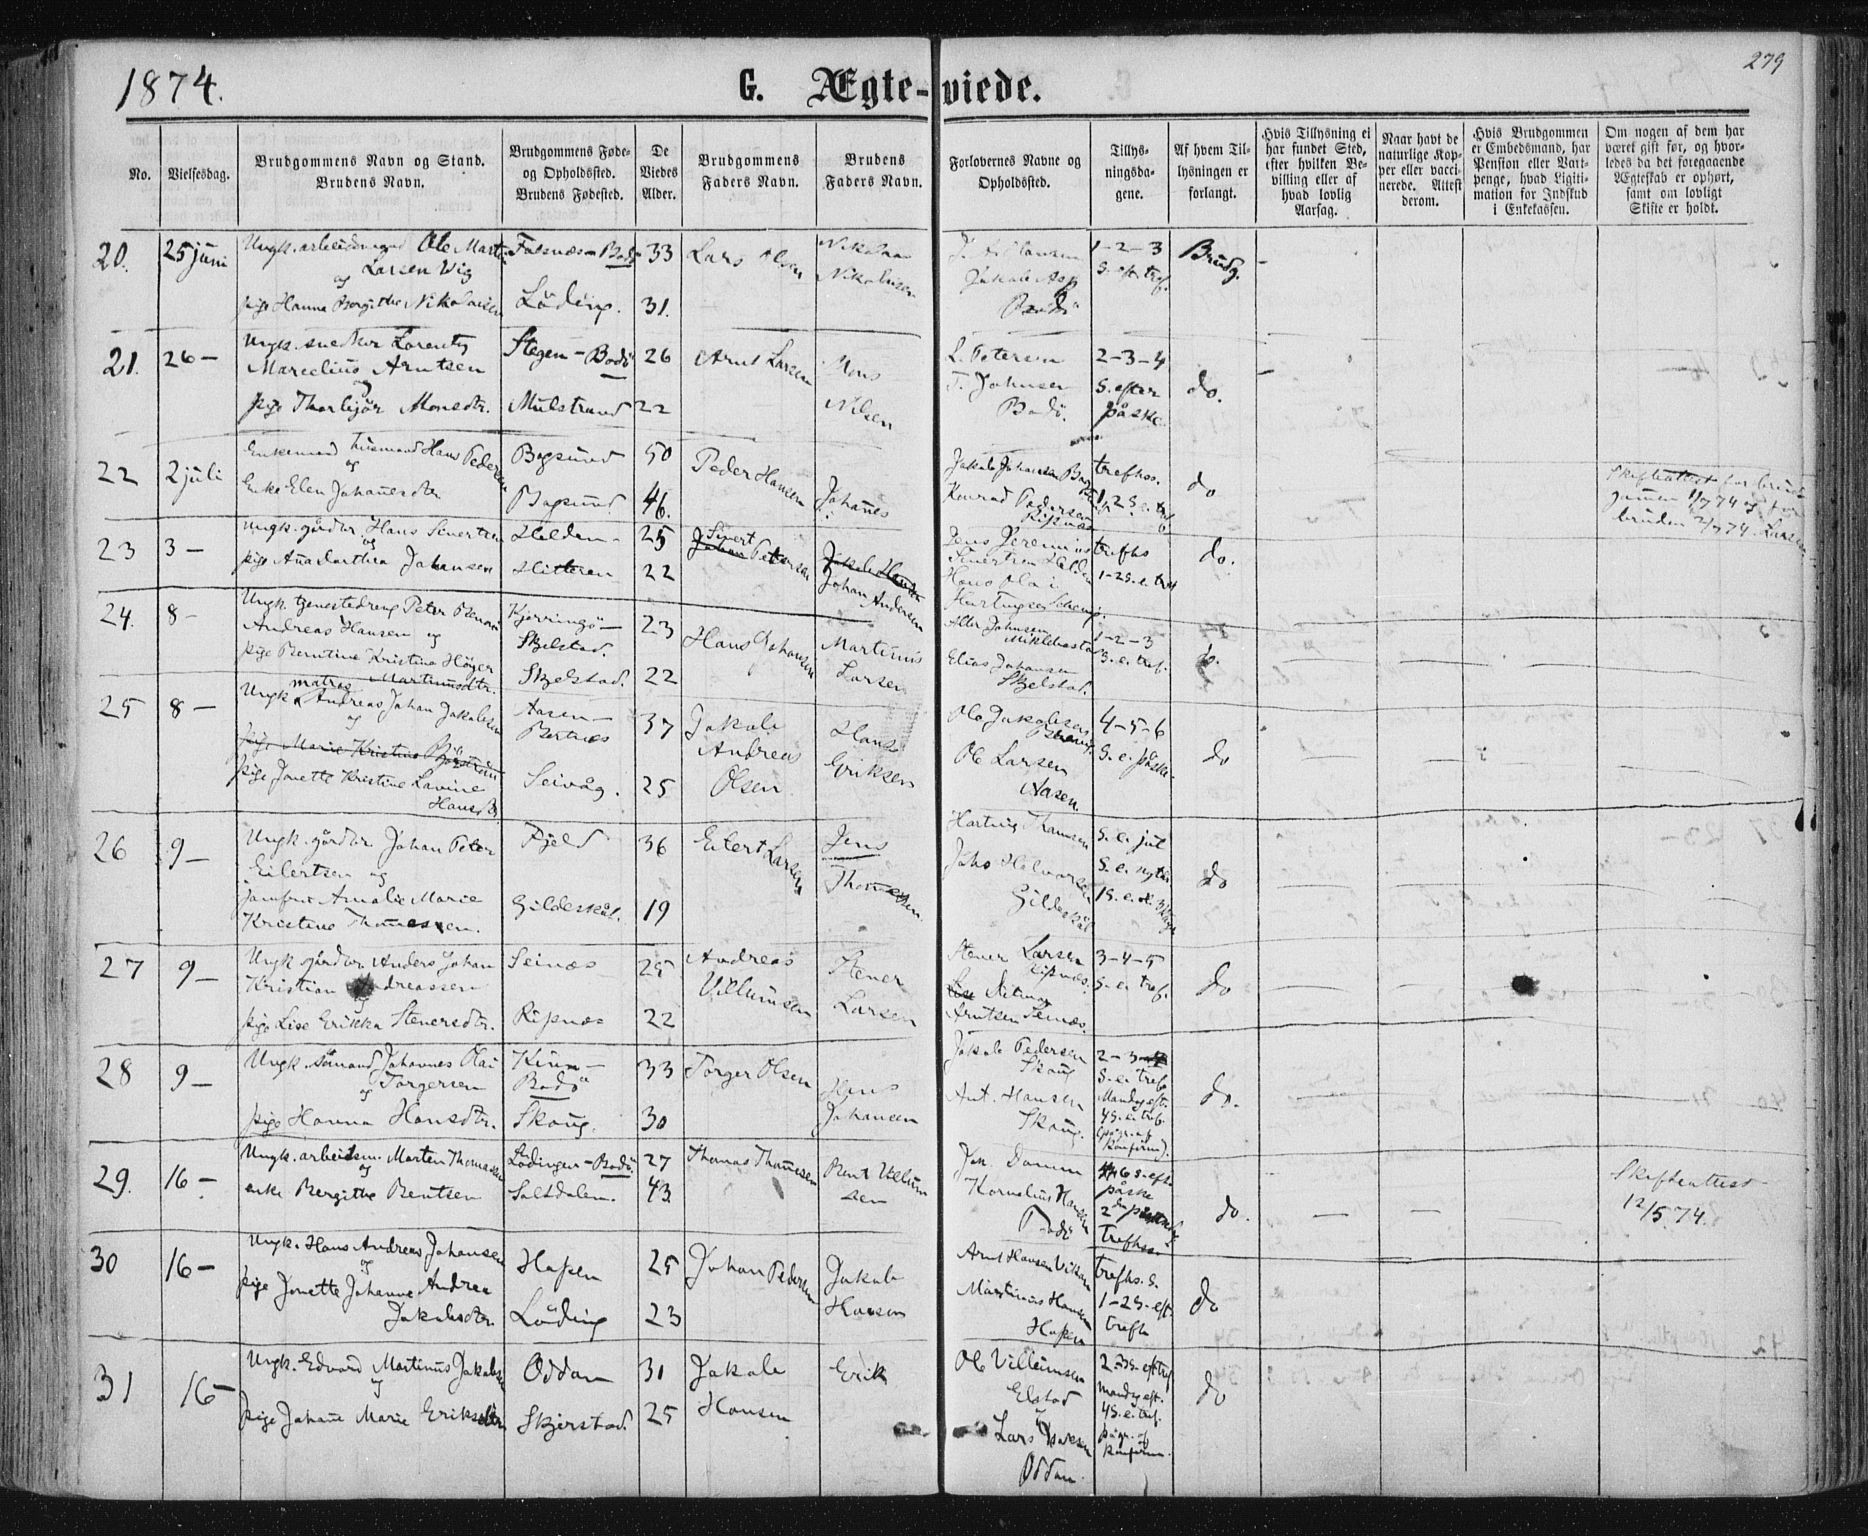 1874.
G. Ægte-viede.
279
No.
Vielsesdag.
Brudgommens Navn og Stand.
Brudens Navn.
Brudgommens Føde-
og Opholdssted.
Brudens Fødested.
De
Viedes
Alder.
Brudgommens
Faders Navn.
Brudens
Faders Navn.
Forlovernes Navne og
Opholdssted.
Tillys-
ningsda-
gene.
Af hvem Til-
lysningen er
forlangt.
Hvis Tillysning ei
har fundet Sted,
efter hvilken Be-
villing eller af
hvad lovlig
Aarsag.
Naar havt de
naturlige Kop-
per eller vacci-
nerede. Attest
derom.
Hvis Brudgommen
er Embedsmand, har
Pension eller Vart-
penge, hvad Ligiti-
mation for Indskud
i Enkekassen.
Om nogen af dem har
været gift før, og hvor-
ledes da det foregaaende
Ægteskab er ophørt,
samt om lovligt
Skifte er holdt.
20. 25 juni Ungk. arbeidsmand Ole Martin
Larsen Vig
og
pige Hanna Bergithe Nikolaisen
Bodø 33
Løding. 31.
Lars Olsen
Nikolai
Nikolaisen
Jakob
Bodø
1-2-3
S. eft. tref.
Brudg.
21. 26 - Ungk. snedker Lorents
Marcelius Arntsen
og
pige Thorbjør Monsdtr.
Stegen - Bodø 26
Mulstrand 22
Arnt Larsen
Mons
Nilsen
L. Petersen
J. Johnsen
Bodø.
2-3-4
S. efter
påske.
do.
22 2 juli Enkemand husmand Hans Pedersen
og
Enke Elen Johanesdtr
Bogsund 50
Bogsund 46.
Peder Hansen
Johanes
Jakob Johansen
Konrad Pedersen
Ripnæs
trefhss.
1-2 S. e. tref
do
Skifteattest for brud-
gomen 1/7 74 og for
bruden 2/7 74. Larsen
23 3 - Ungk. gårdbr. Hans Sivertsen
og
pige Anadorthea Johansen
Halden - 25
Hitteren 22
Sivert
Johan Petersen
Jakob Hansen
Johan Andersen
Jens Jeremias
Sivertsen Halden
Hans Olai
trefhs
1-2 S. e. tref
do.
24. 8 - Ungk. tjenestedreng Peter
Andreas Hansen og
pige Berntine Kristine Høyer
Martinusdtr.
Kjerringø -
Skjelstad. 23
Skjelstad. 22
Hans Johansen
Martinus
Larsen
Johnsen
Elias Johansen
Skjelstad.
1-2-3
S. e. tref.
do.
25 8 - Ungk. matros Andreas Johan Jakobsen
og
pige Marie Kristine
pige Jonette Kristine Lavine
Hansdtr
Aasen -
Bertnes 37
Seivåg. 25
Jakob
Andreas
Olsen
Hans
Eriksen
Ole Jakobsen
Ole Larsen
Aasen
4-5-6
S. e. påske
do
26 9 - Ungk. gårdbr. Johan Peter
Eilertsen og
jomfru Amalie Marie
Kristine Thomessen.
Fjeld 36
Gildeskål. 19
Eilert Larsen
Jens
Thomessen.
Hartvig Thomesen
Halvorsen
Gildeskål
S. e. jul
S. e. nytår
1 S. e.
do
27 9 - Ungk gårdbr. Anders Johan
Kristian Andreassen
og
pige Lise Erikka Stenersdtr.
Seines 25
Ripnæs 22
Andreas
Villumsen
Stener
Larsen
Stener Larsen
Ripnæs.
Arntsen Seinæs.
3-4-5
S. e. tref.
do
28 9 - Ungk sømand Johannes Olai
Torgersen
og
pige Hanna Hansdtr.
Bodø 33
Skoug. 30
Torger Olsen
Hans
Johansen
Jakob Pedersen
Skoug
Ant. Hansen
Skoug.
2-3
S. e. tref
Mandag eft.
4 S. e. tref.
do.
29. 16 - Ungk. arbeidsm. Morten Thomassen
og
enke Bergithe Bentsen
Lødingen - Bodø. 27
Saltdalen. 43.
Thomas Thomesen
Bent Villum
sen
Jon. Damm
Kornelius Hansen
Bodø
6 S. eft.
påske
2
trefhss.
do.
Skifteattest
12/5 74.
30 16 - Ungk. Hans Andreas Johansen
og
pige Jonette Johanne Andrea
Jakobsdtr.
Hopen 25
Løding 23
Johan Pedersen
Jakob
Hansen
Arnt Hansen
Martinus Hansen
Hopen
trefhs. S.
1-2 S. eft.
trefh
do
31 16 - Ungk. Edvard Martinus Jakobsen
og
pige Johane Marie Eriksdtr
Oddan 31
Skjerstad 25
Jakob
Hansen
Erik
Ole Villumsen
Elstad
og
Lars
Oddan.
2 3 S. eft tref
mandag eft.
4 S. e. tref.
do